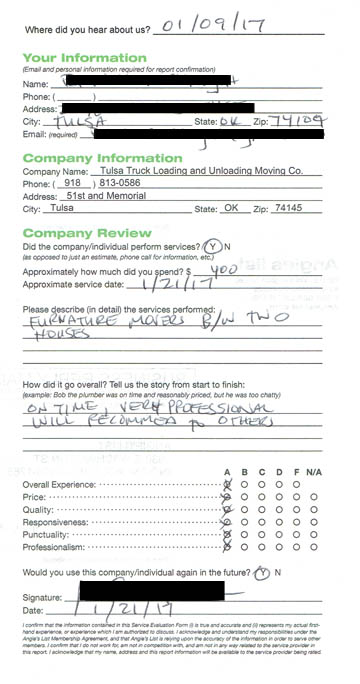 Where did you hear about us? 01/09/17
Your Information
(Email and personal information required for report confirmation)
Name:
Phone: ( )
Address:
City: TULSA State: OK Zip: 74104
Email: (required)
Company Information
Company Name: Tulsa Truck Loading and Unloading Moving Co.
Phone: ( 918 ) 813-0586
Address: 51st and Memorial
City: Tulsa State: OK Zip: 74145
Company Review
Did the company/individual perform services? Y N
(as opposed to just an estimate, phone call for information, etc.)
Approximately how much did you spend? $ 400
Approximate service date: 1/21/17
Please describe (in detail) the services performed:
FURNATURE MOVERS B/W TWO
HOUSES
How did it go overall? Tell us the story from start to finish:
(example: Bob the plumber was on time and reasonably priced, but he was too chatty)
ON TIME, VERY PROFESSIONAL
WILL RECOMMED to OTHERS
A B C D F N/A
Overall Experience:
Price:
Quality:
Responsiveness:
Punctuality:
Professionalism:
Would you use this company/individual again in the future? Y N
Signature:
Date: 1/21/17
I confirm that the information contained in this Service Evaluation Form (i) is true and accurate and (ii) represents my actual first-
hand experience, or experience which I am authorized to discuss. I acknowledge and understand my responsibilities under the
Angie's List Membership Agreement, and that Angie's List is relying upon the accuracy of the information in order to serve other
members. I confirm that I do not work for, am not in competition with, and am not in any way related to the service provider in
this report. I acknowledge that my name, address and this report information will be available to the service provider being rated.